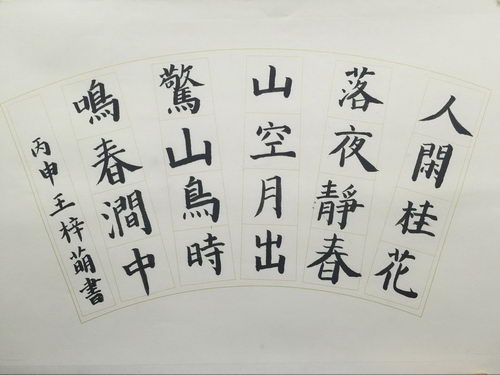 人閑桂花
落夜靜春
山空月出
驚山鳥時
鳴春澗中
丙申王梓萌書